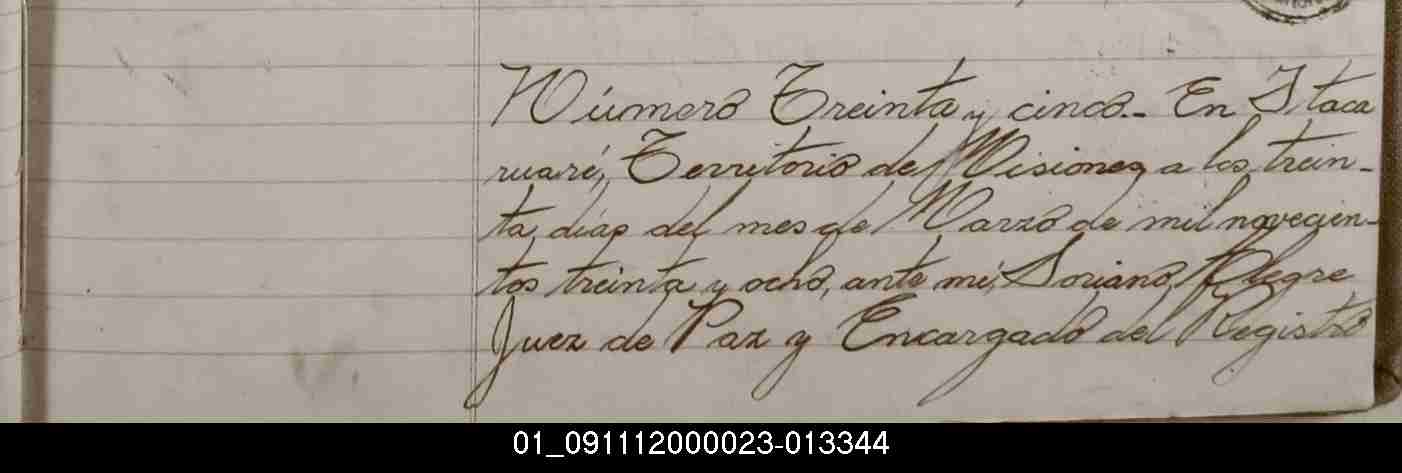 Número Treinta y cinco.- En Itaca
ruaré, Territorio de Misiones, a los trein-
ta dias del mes de Marzo de mil novecien-
tos treinta y ocho, ante mi, Soriano Alegre
Juez de Paz y Encargado del Registro
01_091112000023-013344